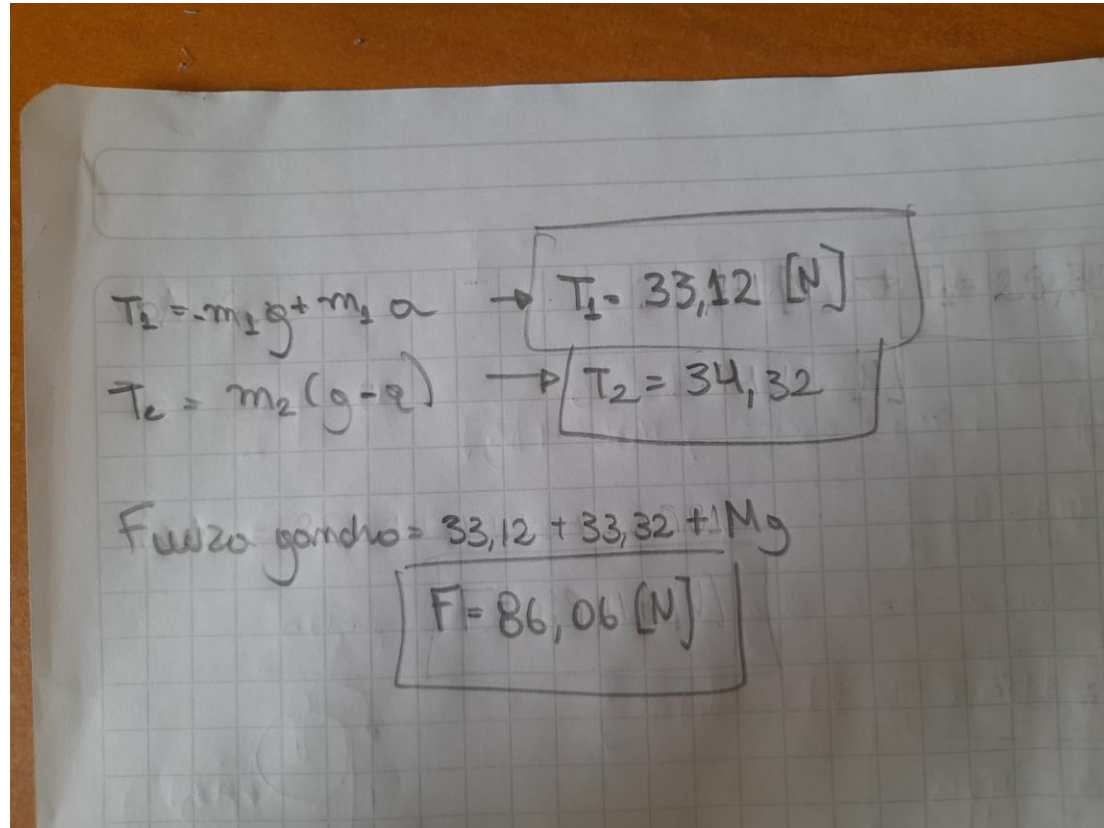 T₁ = -m₁g + m₁ a → T₁ = 33,12 [N]
T₂ = m₂ (g - a) → T₂ = 34,32
Fuerza gancho = 33,12 + 33,32 + Mg
F = 86,06 [N]